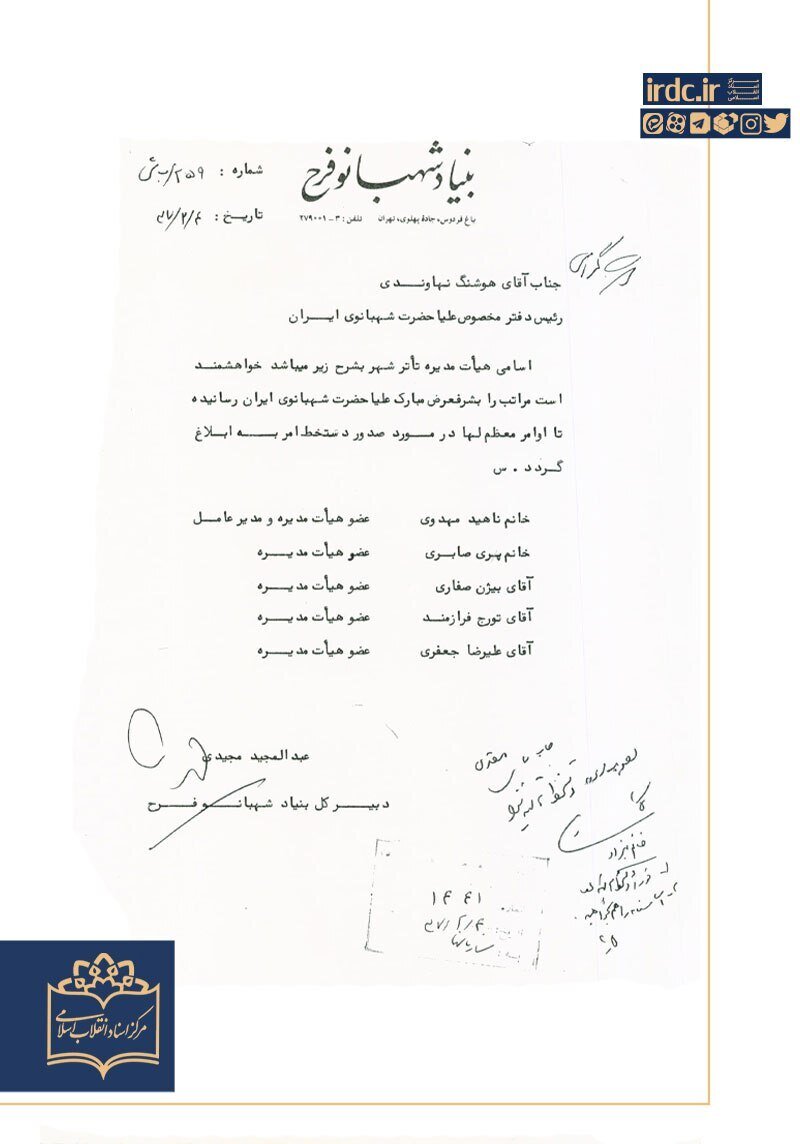 irdc.ir
مرکز اسناد انقلاب اسلامی
بنیاد شهبانو فرح
باغ فردوس، جادهٔ پهلوی، تهران تلفن: ۳-۲۷۹۰۰۱
شماره : ۲۵۹/ب ش
تاریخ : ۳۷/۲/۴
جناب آقای هوشنگ نهاوندی
رئیس دفتر مخصوص علیاحضرت شهبانوی ایران
اسامی هیأت مدیره تأتر شهر بشرح زیر میباشد خواهشمند
است مراتب را بشرفعرض مبارک علیاحضرت شهبانوی ایران رسانیده
تا اوامر معظم لها در مورد صدور دستخط امر به ابلاغ
گردد . س
خانم ناهید مهدوی عضو هیأت مدیره و مدیر عامل
خانم پری صابری عضو هیأت مدیره
آقای بیژن صفاری عضو هیأت مدیره
آقای تورج فرازمند عضو هیأت مدیره
آقای علیرضا جعفری عضو هیأت مدیره
عبدالمجید مجیدی
دبیر کل بنیاد شهبانو فرح
۱۴۴۱
۳۷/۲/۴
مرکز اسناد انقلاب اسلامی